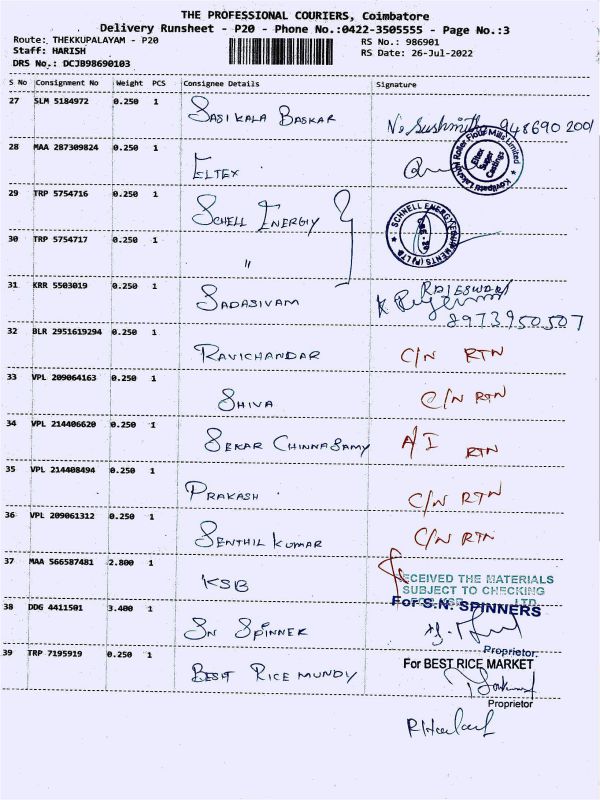 THE PROFESSIONAL COURIERS, Coimbatore
Delivery Runsheet - P20 - Phone No.:0422-3505555 - Page No.:3
Route: THEKKUPALAYAM - P20
RS No.: 986901
Staff: HARISH
RS Date: 26-Jul-2022
DRS No.: DCJB98690103
S No Consignment No Weight PCS Consignee Details Signature
27 SLM 5184972 0.250 1 SASIKALA BASKAR N. Sushmitha 948690 2001
28 MAA 287309824 0.250 1 ELTEX
Kovilpatti Lakshmi Roller Flour Mills Limited
Eltex Super Castings
29 TRP 5754716 0.250 1 SCHELL ENERGIY
SCHNELL ENERGY EQUIPMENTS (P) LTD
CBE - 20
30 TRP 5754717 0.250 1 "
31 KRR 5503019 0.250 1 SADASIVAM
RAJESWARI
8973950507
32 BLR 2951619294 0.250 1 RAVICHANDAR C/N RTN
33 VPL 209064163 0.250 1 SHIVA C/N RTN
34 VPL 214406620 0.250 1 SEKAR CHINNASAMY A/I RTN
35 VPL 214408494 0.250 1 PRAKASH C/N RTN
36 VPL 209061312 0.250 1 SENTHIL KUMAR C/N RTN
37 MAA 566587481 2.800 1 KSB
RECEIVED THE MATERIALS
SUBJECT TO CHECKING
FOR KSB LTD.
38 DDG 4411501 3.400 1 SN SPINNER
For S.N. SPINNERS
Proprietor.
39 TRP 7195919 0.250 1 BEST RICE MUNDY
For BEST RICE MARKET
Proprietor